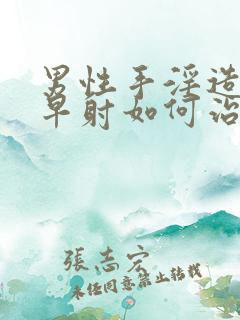 男性手淫造
早射如何治
張志宏
未经同意禁止转载